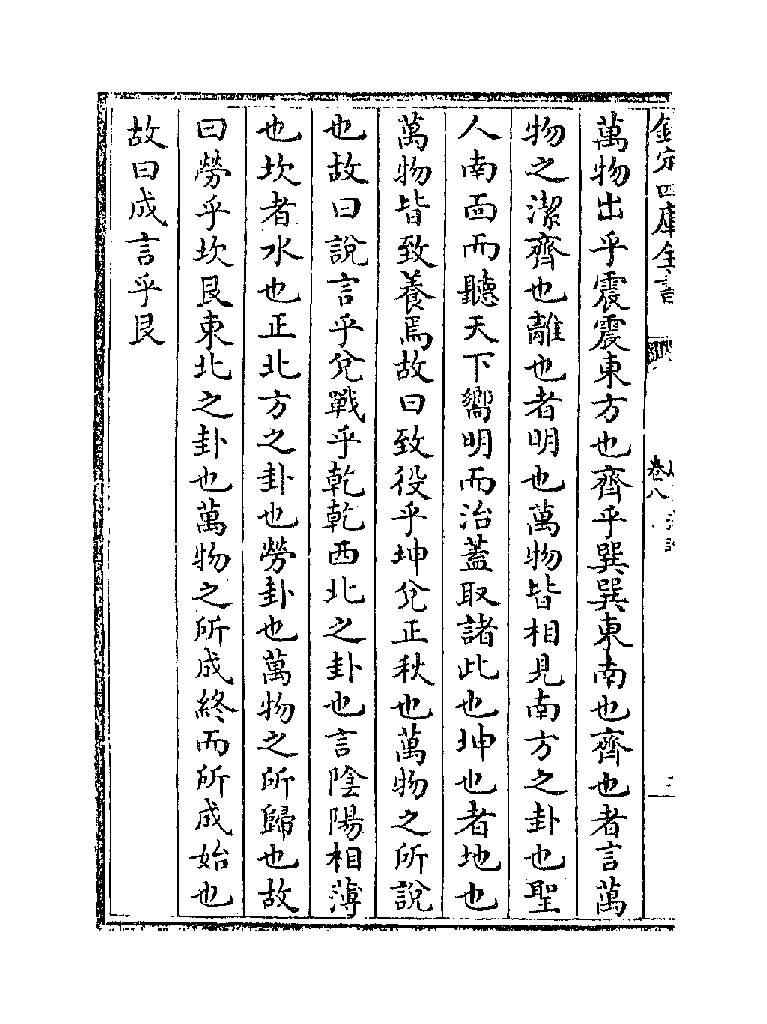 欽定四庫全書
卷八
萬物出乎震震東方也齊乎巽巽東南也齊也者言萬
物之潔齊也離也者明也萬物皆相見南方之卦也聖
人南面而聽天下嚮明而治蓋取諸此也坤也者地也
萬物皆致養焉故曰致役乎坤兌正秋也萬物之所說
也故曰說言乎兌戰乎乾乾西北之卦也言陰陽相薄
也坎者水也正北方之卦也勞卦也萬物之所歸也故
曰勞乎坎艮東北之卦也萬物之所成終而所成始也
故曰成言乎艮